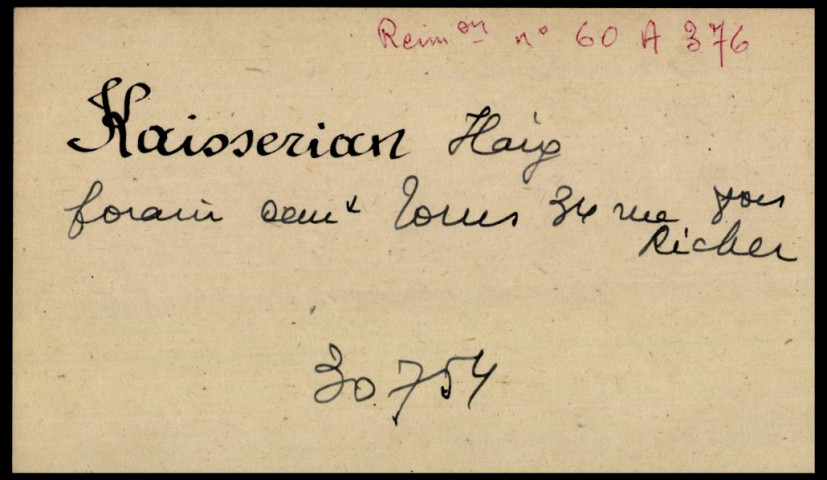 Reim on n° 60 A 376
Kaisserian Haig
forain demt Tours 34 rue
Richer
30754